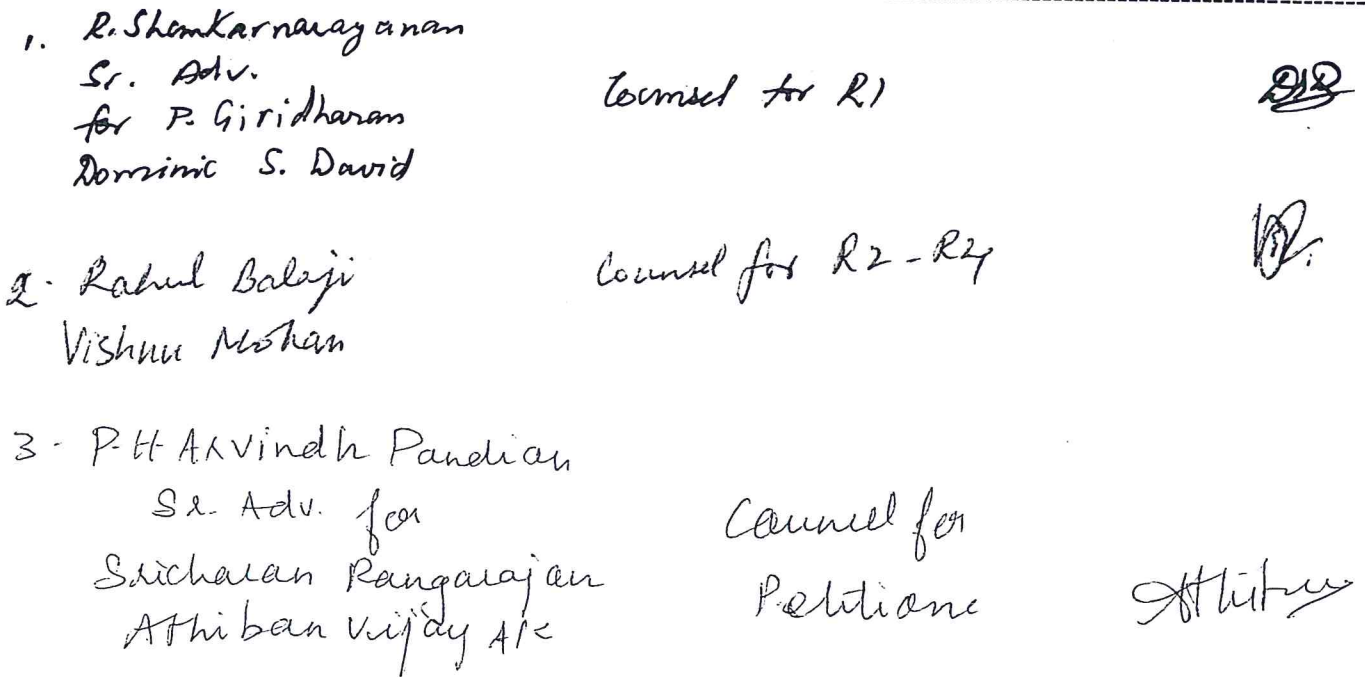 1. R. Shankarnarayanan
Sr. Adv.
for P. Giridharan
Dominic S. David
Counsel for R1
2. Rahul Balaji
Vishnu Mohan
Counsel for R2-R4
3. P.H Arvindh Pandian
Sr. Adv. for
Sricharan Rangarajan
Athiban Vijay AK
Counsel for
Petitione
Athiban